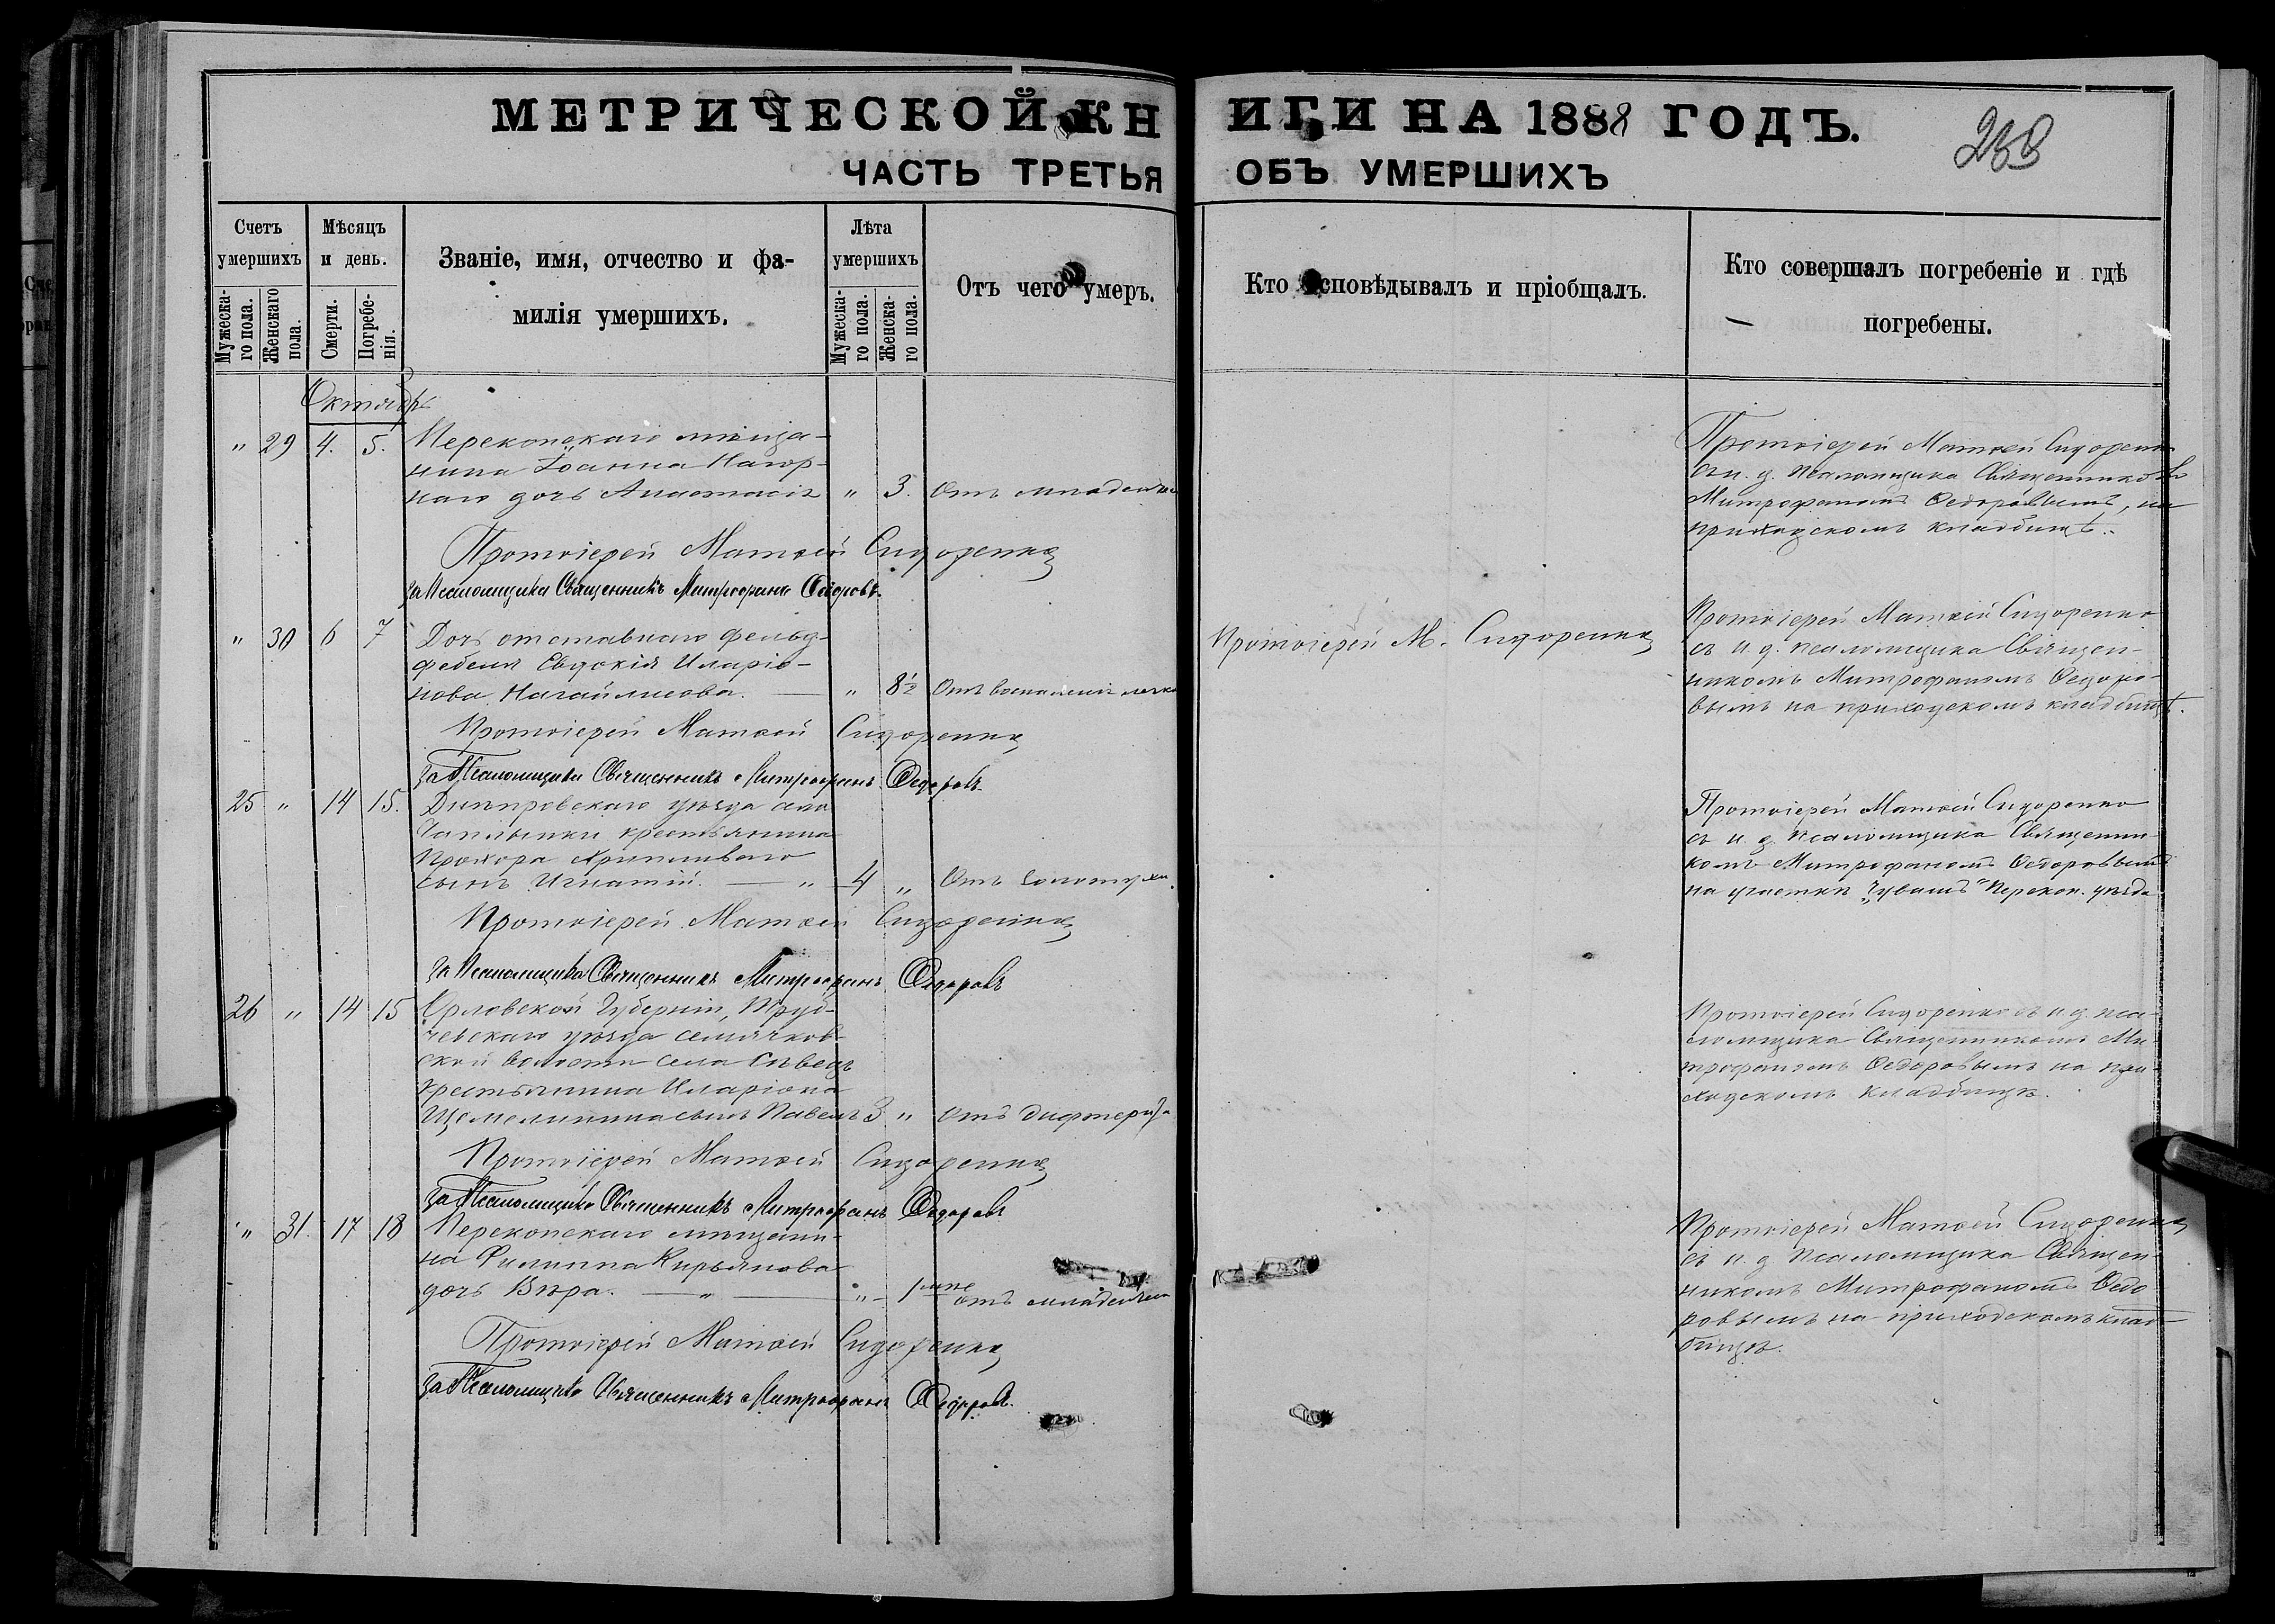 МЕТРИЧЕСКОЙ КНИГИ НА 1888 ГОДЪ.
ЧАСТЬ ТРЕТЬЯ ОБЪ УМЕРШИХЪ
Счетъ умершихъ
Мужеска-го пола.
Женскаго пола.
Мѣсяцъ и день.
Смерти.
Погребе-нія.
Званіе, имя, отчество и фа-
милія умершихъ.
Лѣта умершихъ
Мужеска-го пола.
Женска-го пола.
Отъ чего умеръ.
Кто исповѣдывалъ и пріобщалъ.
Кто совершалъ погребеніе и гдѣ
погребены.
Октябрь
" 29 4. 5.
Перекопскаго мѣща-
нина Іоанна Нагор-
наго дочь Анастасія " 3. Отъ
Протоіерей Матѳей Сидоренко
съ и. д. псаломщика Священникомъ
Митрофаномъ Ѳедоровымъ, на
приходскомъ кладбищѣ.
Протоіерей Матѳей Сидоренко
За Псаломщика Священникъ Митрофанъ Ѳедоровъ.
" 30 6 7
Дочь отставнаго фельд-
фебеля Евдокія Иларіо-
нова " 8½ Отъ воспаленія легк
Протоіерей М. Сидоренко
Протоіерей Матѳей Сидоренко
съ и. д. псаломщика Священ-
никомъ Митрофаномъ Ѳедоро-
вымъ на приходскомъ кладбищѣ.
Протоіерей Матѳей Сидоренко
За Псаломщика Священникъ Митрофанъ Ѳедоровъ
25 " 14 15.
Днѣпровскаго уѣзда села
Чаплынки крестьянина
Прохора
сынъ Игнатій. — " 4 " Отъ золотухи.
Протоіерей Матѳей Сидоренко
съ и. д. Псаломщика Священни-
комъ Митрофаномъ Ѳедоровымъ
на участкѣ „Чувашъ" Перекоп. уѣзда
Протоіерей Матѳей Сидоренко
За Псаломщика Священникъ Митрофанъ Ѳедоровъ
26 " 14 15
Орловской Губерніи, Труб-
чевскаго уѣзда Семячков-
ской волости села
крестьянина Иларіона
сынъ Павелъ 3 " Отъ дифтерита
Протоіерей Сидоренко съ и. д. пса-
ломщика Священникомъ Ми-
трофаномъ Ѳедоровымъ на при-
ходскомъ кладбищѣ.
Протоіерей Матѳей Сидоренко
За Псаломщика Священникъ Митрофанъ Ѳедоровъ
" 31. 17 18
Перекопскаго мѣщани-
на Филиппа Кирьянова
дочь Вѣра. — " — " 1 отъ
Протоіерей Матѳей Сидоренко
съ и. д. Псаломщика Священ-
никомъ Митрофаномъ Ѳедо-
ровымъ на приходскомъ клад-
бищѣ.
Протоіерей Матѳей Сидоренко
За Псаломщика Священникъ Митрофанъ Ѳедоровъ.